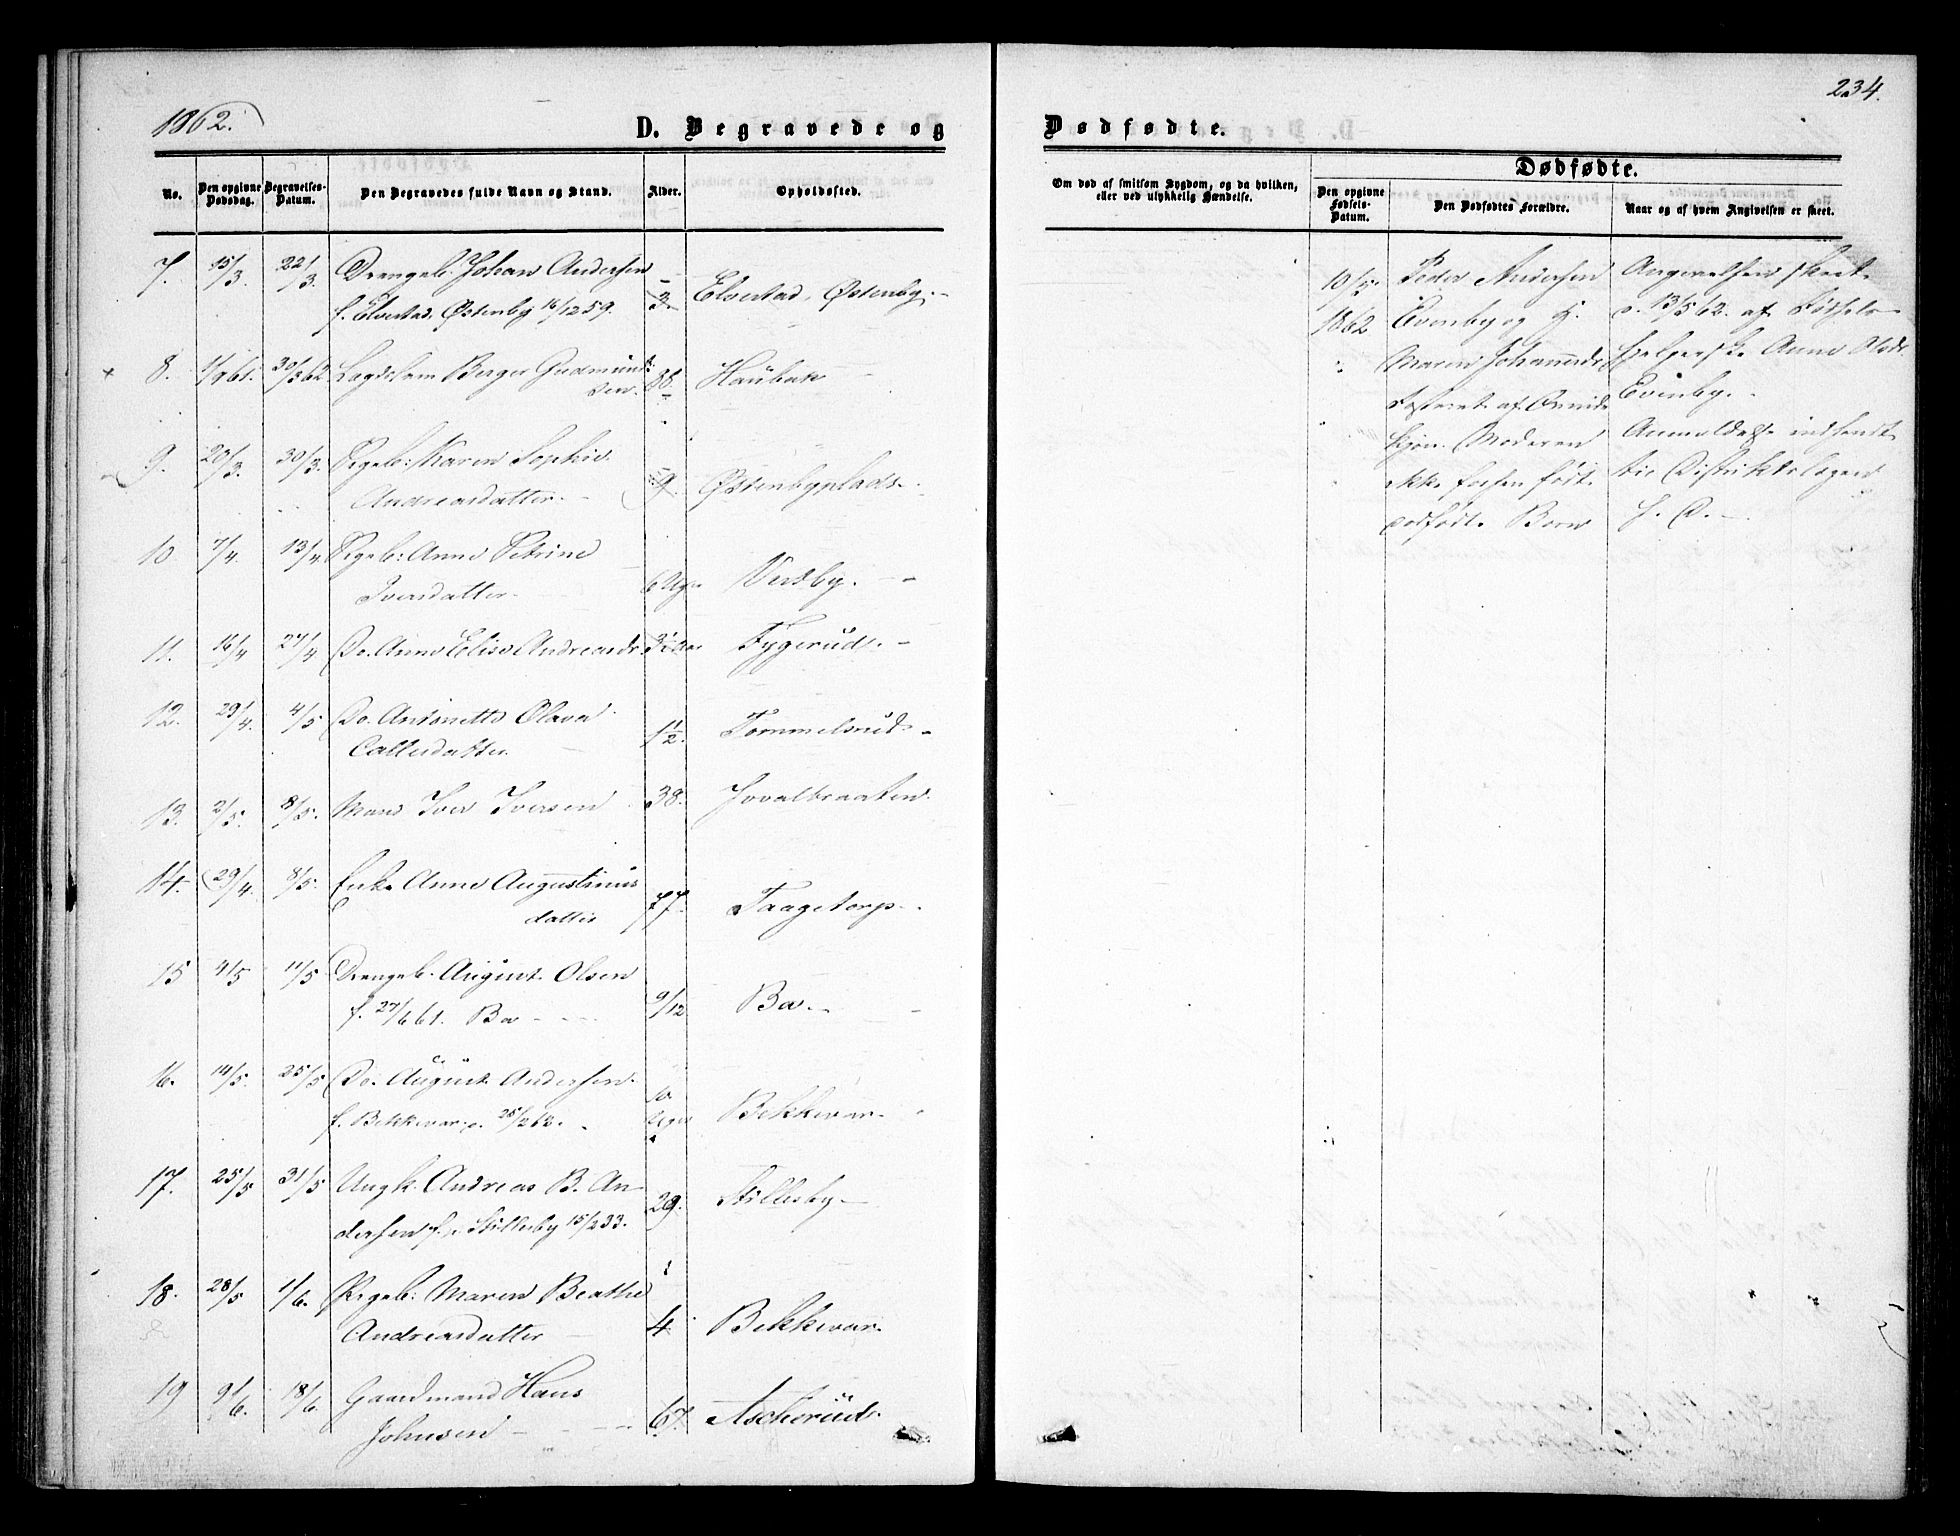 1862.
234.
D. Begravede og Dødfødte.
Dødfødte.
No.
Den opgivne Dødsdag.
Begravelses-Datum.
Den Begravedes fulde Navn og Stand.
Alder.
Opholdssted.
Om død af smitsom Sygdom, og da hvilken, eller ved ulykkelig Hændelse.
Den opgivne Fødsels-Datum.
Den Dødfødtes Forældre.
Naar og af hvem Angivelsen er skeet.
7. 15/3 22/3 Drengeb. Johan Andersen
f. Elvestad, Østenby 16/12 59. 3. Elvestad, Østenby.
8. 30/3 62 Berger Gudmund-
sen. 38. Haübak
9. 20/3. 30/3. Pigeb: Karen Sophie
Andreasdatter. 9. Østenbyplads.
10. 7/4. 13/4 Pigeb: Anne Petrine
Iversdatter. 6 Ug. Verdby.
11. 16/4 27/4 Do. Anne Elise Andreasdr. Tygerüd.
12. 29/4. 4/5 Do. Antonette Olava
1 1/2. Tommelsrud.
13. 2/5. 8/5. Mand Iver Iversen 38. Hovalbraaten.
14. 29/4. 8/5. Enke Anne Augustinus
datter 77. Taagetorp.
15 4/5 11/5 Drengeb. August Olsen
f. 27/6 61. Bø 9/12 Bø.
16. 14/5. 25/5 Do. August Andersen
f. Bekkevar d. 25/2 62. 10 Uger Bekkevar.
17. 25/5 31/5 Ungk. Andreas B. An-
dersen f. Stillesby 15/2 33. 29. Stillesby
18. 28/5 1/6. Pigeb: Maren Beathe
Andreasdatter 4 Bekkevar.
19 9/6. 18/6. Gaardmand Hans
Johnsen 67. Ascherüd.
10/5 1862
Peder Andersen
Evenby og H.
Maren Johannesdr
Fosteret af Qvinde
kjøn. Moderen
ikke forhen født
dødfødte Børn
Angivelsen skeet
d. 13/5 62. af Fødsels-
hjelperske Anne Olsdr
Evenby.
Anmeldelse indsendt
til Distriktslægen
s. D.